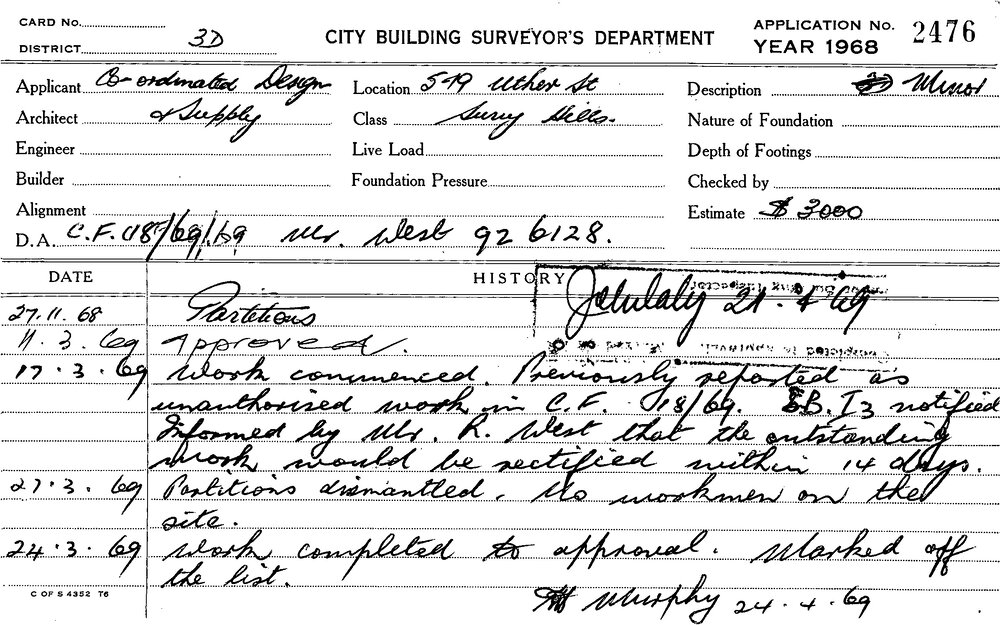 CARD No.
DISTRICT 3D
CITY BUILDING SURVEYOR'S DEPARTMENT
APPLICATION No. 2476
YEAR 1968
Applicant Co-ordinated Design
Architect & Supply
Engineer
Builder
Alignment
D.A. C.F. 018/69/69 Mr. West 92 6128.
Location 5-19 Uther St
Class Surry Hills.
Live Load
Foundation Pressure
Description Minor
Nature of Foundation
Depth of Footings
Checked by
Estimate $ 3000
DATE HISTORY
21.4.69
27.11.68 Partitions
11.3.69 Approved.
17.3.69 Work commenced. Previously reported as
unauthorised work in C.F. 018/69. notified
Informed by Mr. R. West that the outstanding
work would be rectified within 14 days.
27.3.69 Partitions dismantled. No workmen on the
site.
24.3.69 Work completed to approval. Marked off
the list.
Murphy 24.4.69
C OF S 4352 T6